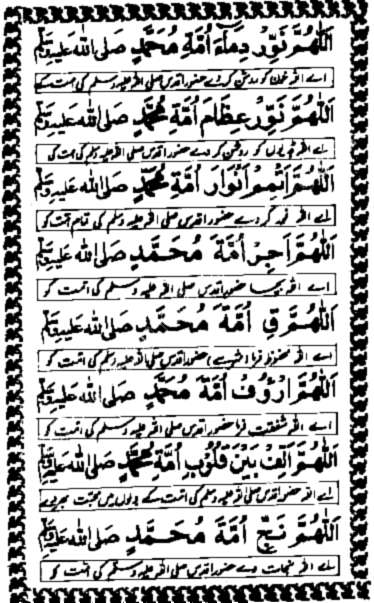 اَللّٰهُمَّ نَوِّرْ دِمَآءَ اُمَّةِ مُحَمَّدٍ صَلَى اللهُ عَلَيْهِ ﷺ
اے اللہ خون کو روشن کر دے حضور اقدس صلی اللہ علیہ وسلم کی امت کے
اَللّٰهُمَّ نَوِّرْ عِظَامَ اُمَّةِ مُحَمَّدٍ صَلَى اللهُ عَلَيْهِ ﷺ
اے اللہ ہڈیوں کو روشن کر دے حضور اقدس صلی اللہ علیہ وسلم کی امت کی
اَللّٰهُمَّ اَتْمِمْ اَنْوَارَ اُمَّةِ مُحَمَّدٍ صَلَى اللهُ عَلَيْهِ ﷺ
اے اللہ نور کر دے حضور اقدس صلی اللہ علیہ وسلم کی تمام امت کو
اَللّٰهُمَّ اَجِرْ اُمَّةَ مُحَمَّدٍ صَلَى اللهُ عَلَيْهِ ﷺ
اے اللہ بچا حضور اقدس صلی اللہ علیہ وسلم کی امت کو
اَللّٰهُمَّ قِ اُمَّةَ مُحَمَّدٍ صَلَى اللهُ عَلَيْهِ ﷺ
اے اللہ محفوظ فرما حضور اقدس صلی اللہ علیہ وسلم کی امت کو
اَللّٰهُمَّ ارْؤُفْ اُمَّةَ مُحَمَّدٍ صَلَى اللهُ عَلَيْهِ ﷺ
اے اللہ شفقت فرما حضور اقدس صلی اللہ علیہ وسلم کی امت کو
اَللّٰهُمَّ اَلِّفْ بَيْنَ قُلُوْبِ اُمَّةِ مُحَمَّدٍ صَلَى اللهُ عَلَيْهِ ﷺ
اے اللہ حضور اقدس صلی اللہ علیہ وسلم کی امت کے دلوں میں محبت بھر دے
اَللّٰهُمَّ نَجِّ اُمَّةَ مُحَمَّدٍ صَلَى اللهُ عَلَيْهِ ﷺ
اے اللہ نجات دے حضور اقدس صلی اللہ علیہ وسلم کی امت کو